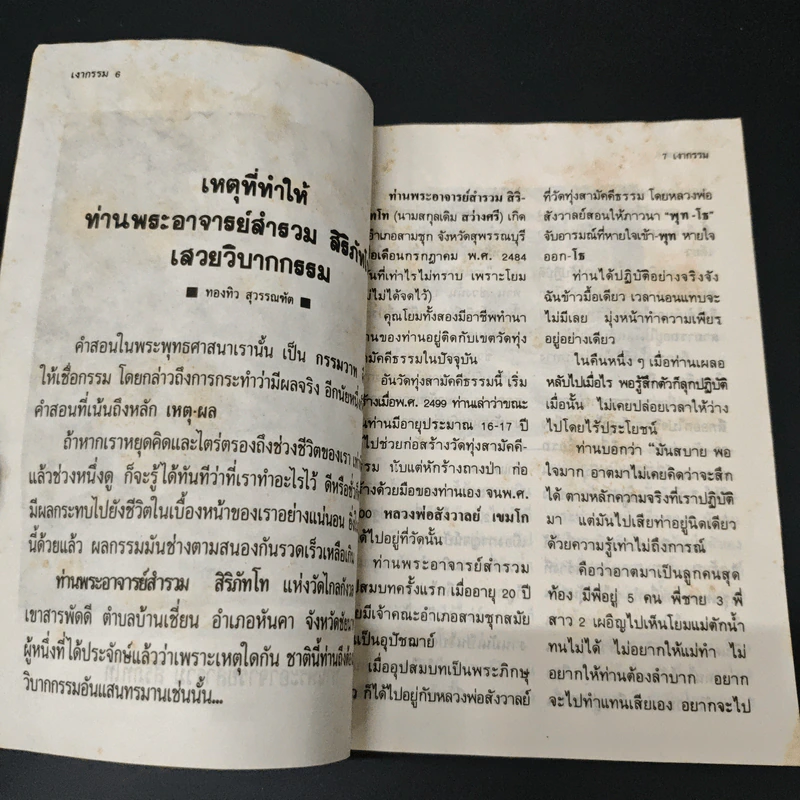 เงากรรม 6
เหตุที่ทำให้
ท่านพระอาจารย์สำรวม สิริภัท
เสวยวิบากกรรม
■ ทองทิว สุวรรณทัต ■
คำสอนในพระพุทธศาสนาเรานั้น เป็น กรรมวาท
ให้เชื่อกรรม โดยกล่าวถึงการกระทำว่ามีผลจริง อีกนัยหนึ่ง
คำสอนที่เน้นถึงหลัก เหตุ-ผล
ถ้าหากเราหยุดคิดและไตร่ตรองถึงช่วงชีวิตของเรา
แล้วช่วงหนึ่งดู ก็จะรู้ได้ทันทีว่าที่เราทำอะไรไว้ ดีหรือ
มีผลกระทบไปยังชีวิตในเบื้องหน้าของเราอย่างแน่นอน
นี้ด้วยแล้ว ผลกรรมมันช่างตามสนองกันรวดเร็วเหลือ
ท่านพระอาจารย์สำรวม สิริภัทโท แห่งวัดไกลกังวล
เขาสารพัดดี ตำบลบ้านเชี่ยน อำเภอหันคา จังหวัดชัย
ผู้หนึ่งที่ได้ประจักษ์แล้วว่าเพราะเหตุใดกัน ชาตินี้ท่านถึง
วิบากกรรมอันแสนทรมานเช่นนั้น...
7 เงากรรม
ท่านพระอาจารย์สำรวม สิริ-
ัทโท (นามสกุลเดิม สว่างศรี) เกิด
อำเภอสามชุก จังหวัดสุพรรณบุรี
อเดือนกรกฎาคม พ.ศ. 2484
นที่เท่าไรไม่ทราบ เพราะโยม
ม่ได้จดไว้)
คุณโยมทั้งสองมีอาชีพทำนา
านของท่านอยู่ติดกับเขตวัดทุ่ง
ามัคคีธรรมในปัจจุบัน
อันวัดทุ่งสามัคคีธรรมนี้ เริ่ม
ร้างเมื่อพ.ศ. 2499 ท่านเล่าว่าขณะ
นท่านมีอายุประมาณ 16-17 ปี
ไปช่วยก่อสร้างวัดทุ่งสามัคคี-
รรม นับแต่หักร้างถางป่า ก่อ
ร้างด้วยมือของท่านเอง จนพ.ศ.
00 หลวงพ่อสังวาลย์ เขมโก
ด้ไปอยู่ที่วัดนั้น
ท่านพระอาจารย์สำรวม
ปสมบทครั้งแรก เมื่ออายุ 20 ปี
ยมีเจ้าคณะอำเภอสามชุกสมัย
เป็นอุปัชฌาย์
เมื่ออุปสมบทเป็นพระภิกษุ
ว ก็ได้ไปอยู่กับหลวงพ่อสังวาลย์
ที่วัดทุ่งสามัคคีธรรม โดยหลวงพ่อ
สังวาลย์สอนให้ภาวนา "พุท-โธ"
จับอารมณ์ที่หายใจเข้า-พุท หายใจ
ออก-โธ
ท่านได้ปฏิบัติอย่างจริงจัง
ฉันข้าวมื้อเดียว เวลานอนแทบจะ
ไม่มีเลย มุ่งหน้าทำความเพียร
อยู่อย่างเดียว
ในคืนหนึ่ง ๆ เมื่อท่านเผลอ
หลับไปเมื่อไร พอรู้สึกตัวก็ลุกปฏิบัติ
เมื่อนั้น ไม่เคยปล่อยเวลาให้ว่าง
ไปโดยไร้ประโยชน์
ท่านบอกว่า "มันสบาย พอ
ใจมาก อาตมาไม่เคยคิดว่าจะสึก
ได้ ตามหลักความจริงที่เราปฏิบัติ
มา แต่มันไปเสียท่าอยู่นิดเดียว
ด้วยความรู้เท่าไม่ถึงการณ์
คือว่าอาตมาเป็นลูกคนสุด
ท้อง มีพี่อยู่ 5 คน พี่ชาย 3 พี่
สาว 2 เผอิญไปเห็นโยมแม่ตักน้ำ
ทนไม่ได้ ไม่อยากให้แม่ทำ ไม่
อยากให้ท่านต้องลำบาก อยาก
จะไปทำแทนเสียเอง อยากจะไป